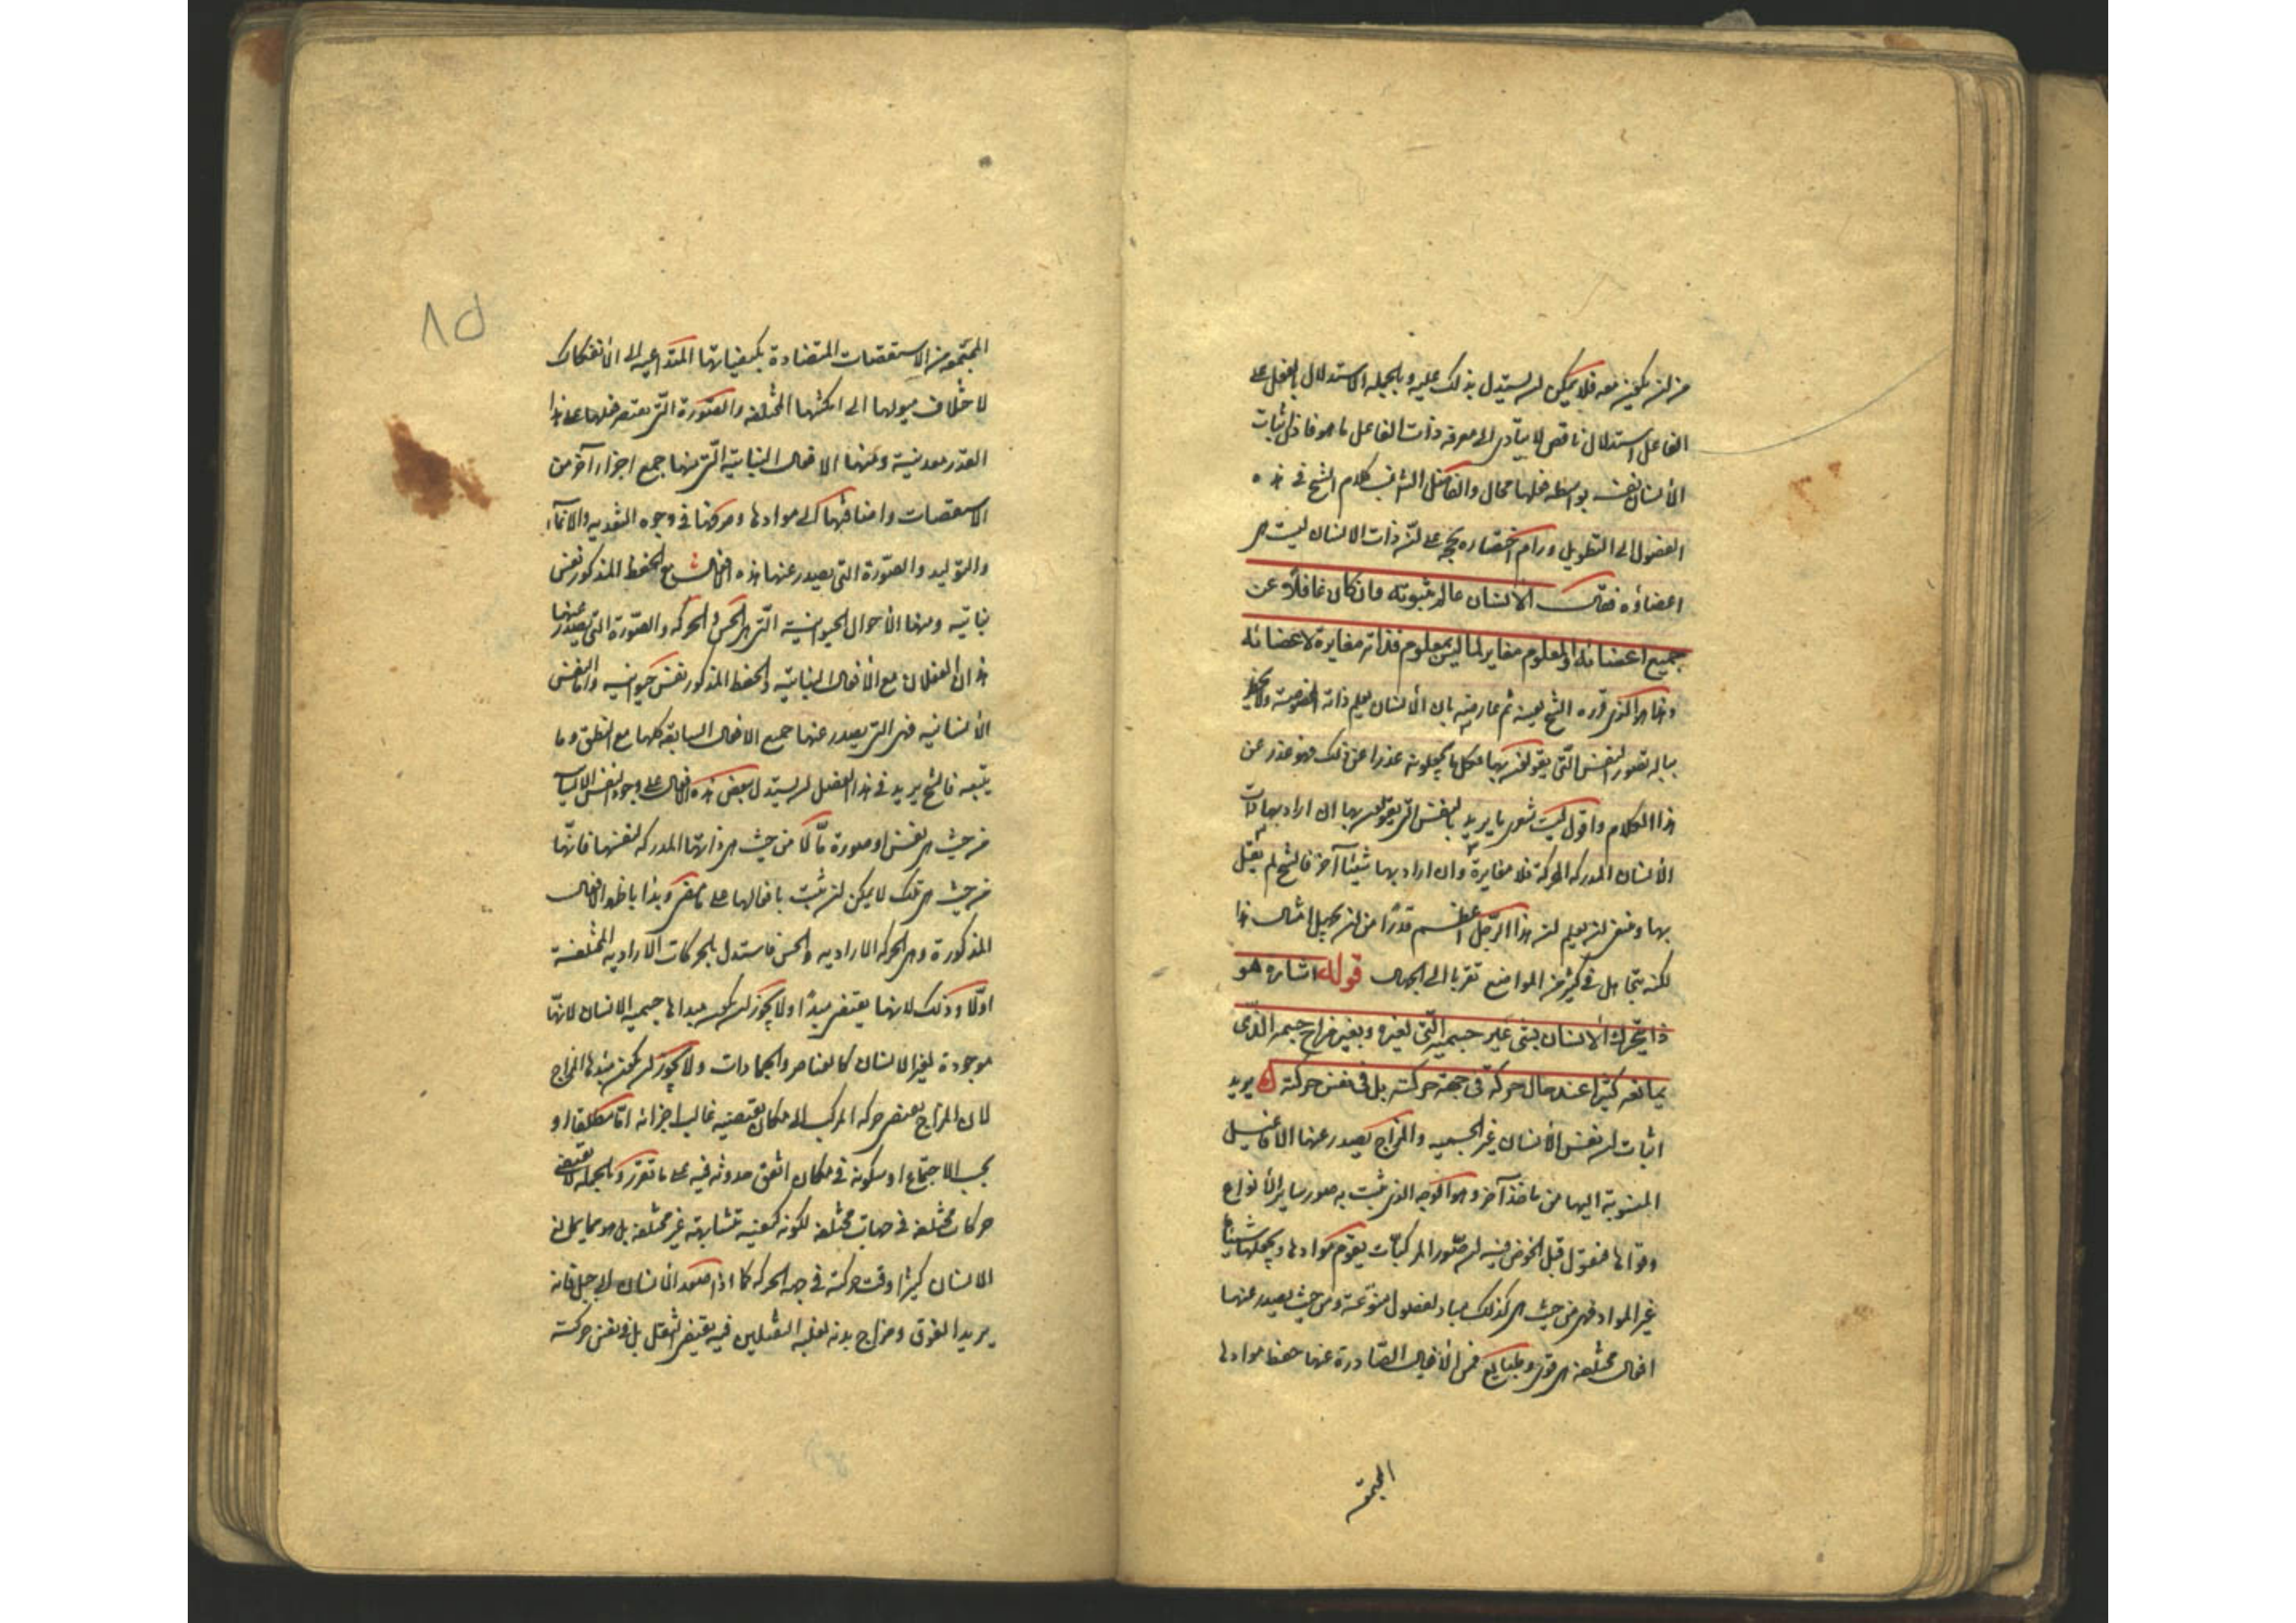 من ان يكون معه فلا يمكن ان يستدل بذلك عليه وبالجملة الاستدلال بالفعل على
الفاعل استدلال ناقص لا يتأدى الى معرفة ذات الفاعل ما هو فاذن اثبات
الأنسان نفسه بواسطة فعلها محال والفاضل الشارح نسب كلام الشيخ في هذه
الفصول الى التطويل ورام اختصاره بحجة على ان ذات الانسان ليست هى
اعضاؤه فقال الانسان عالم بثبوته وان كان غافلاً عن
جميع اعضائه والمعلوم مغاير لما ليس بمعلوم فذاته مغايرة لاعضائه
وهذا هو الذى قرره الشيخ بعينه ثم عارضه بان الأنسان يعلم ذاته المخصوصة ولا يخطر
بباله تصور النفس التى يقولون بها فكل ما يجعلونه عذرا عن ذلك فهو عذر عن
هذا الكلام واقول ليت شعرى ما يريد بالنفس التى يقولون بها ان اراد بها ذات
الأنسان المدركة المحركة فلا مغايرة وان اراد بها شيئا آخر فالشيخ لم يقل
بها ونحن نعلم ان هذا الرجل اعظم قدرًا من ان يجهل امثال هذا
لكنه يتجاهل في كثير من المواضع تقربا الى الجهال قوله اشارة هو
ذا يتحرك الأنسان بشى غير جسميته التى لغيره وبغير مزاج جسمه الذى
يمانعه كثيرا عند حال حركته فى جهة حركته بل فى نفس حركته يريد
اثبات ان نفس الأنسان غير الجسمية والمزاج يصدر عنها الأفاعيل
المنسوبة اليها من ماخذ آخر وهو الوجه الذى يثبت به صور ساير الأنواع
وقواها فنقول قبل الخوض فيه ان صور المركبات يقوم موادها ويجعلها شيئا
غير المواد فهى من حيث هى كذلك مباد لفصول منوعة ومن حيث يصدر عنها
افعال مختلفة هى قوى وطبايع فمن الأفعال الصادرة عنها حفظ موادها
المجتمعة
٨٥
المجتمعة من الاستقصات المتضادة بكيفياتها المتداعية الى الانفكاك
لاختلاف ميولها الى امكنتها المختلفة والصورة التى يقتصر فعلها على هذا
القدر معدنية ومنها الافعال النباتية التى منها جمع اجزاء آخر من
الاستقصات واضافتها الى موادها وصرفها فى وجوه التغذية والانماء
والتوليد والصورة التى يصدر عنها هذه الافعال مع الحفظ المذكور نفس
نباتية ومنها الأحوال الحيوانية التى هى الحس والحركة والصورة التى يصدر عنها
هذان الفعلان مع الأفعال النباتية والحفظ المذكور نفس حيوانية واما النفس
الأنسانية فهى التى يصدر عنها جميع الافعال السابقة كلها مع النطق وما
يتبعه فالشيخ يريد فى هذا الفصل ان يستدل ببعض هذه الافعال على وجود النفس الانسانية
من حيث هى نفس او صورة ما لا من حيث هى ذاتها المدركة لنفسها فانها
من حيث هى تلك لا يمكن ان يثبت بافعالها على ما مضى وبدا باظهر الافعال
المذكورة وهى الحركة الارادية والحس فاستدل بالحركات الارادية المختلفة
اولًا وذلك لانها يقتضى مبدأ ولا يجوز ان يكون مبداها جسمية الانسان لانها
موجودة لغير الانسان كالعناصر والجمادات ولا يجوز ان يكون مبدئها المزاج
لان المزاج يقتضى حركة المركب الى مكان يقتضيه غالب اجزائه اما مطلقا او
بحسب الاجتماع او سكونه فى مكان اتفق حدوثه فيه على ما تقرر وبالجملة لا يقتضى
حركات مختلفة فى جهات مختلفة لكونه كيفية متشابهة غير مختلفة بل هو مما يمانع
الانسان كثيرا وقت حركته فى جهة الحركة كما اذا صعد الأنسان الى جبل فانه
يريد الفوق ومزاج بدنه لغلبة الثقيلين فيه يقتضى السفل بل فى نفس حركته